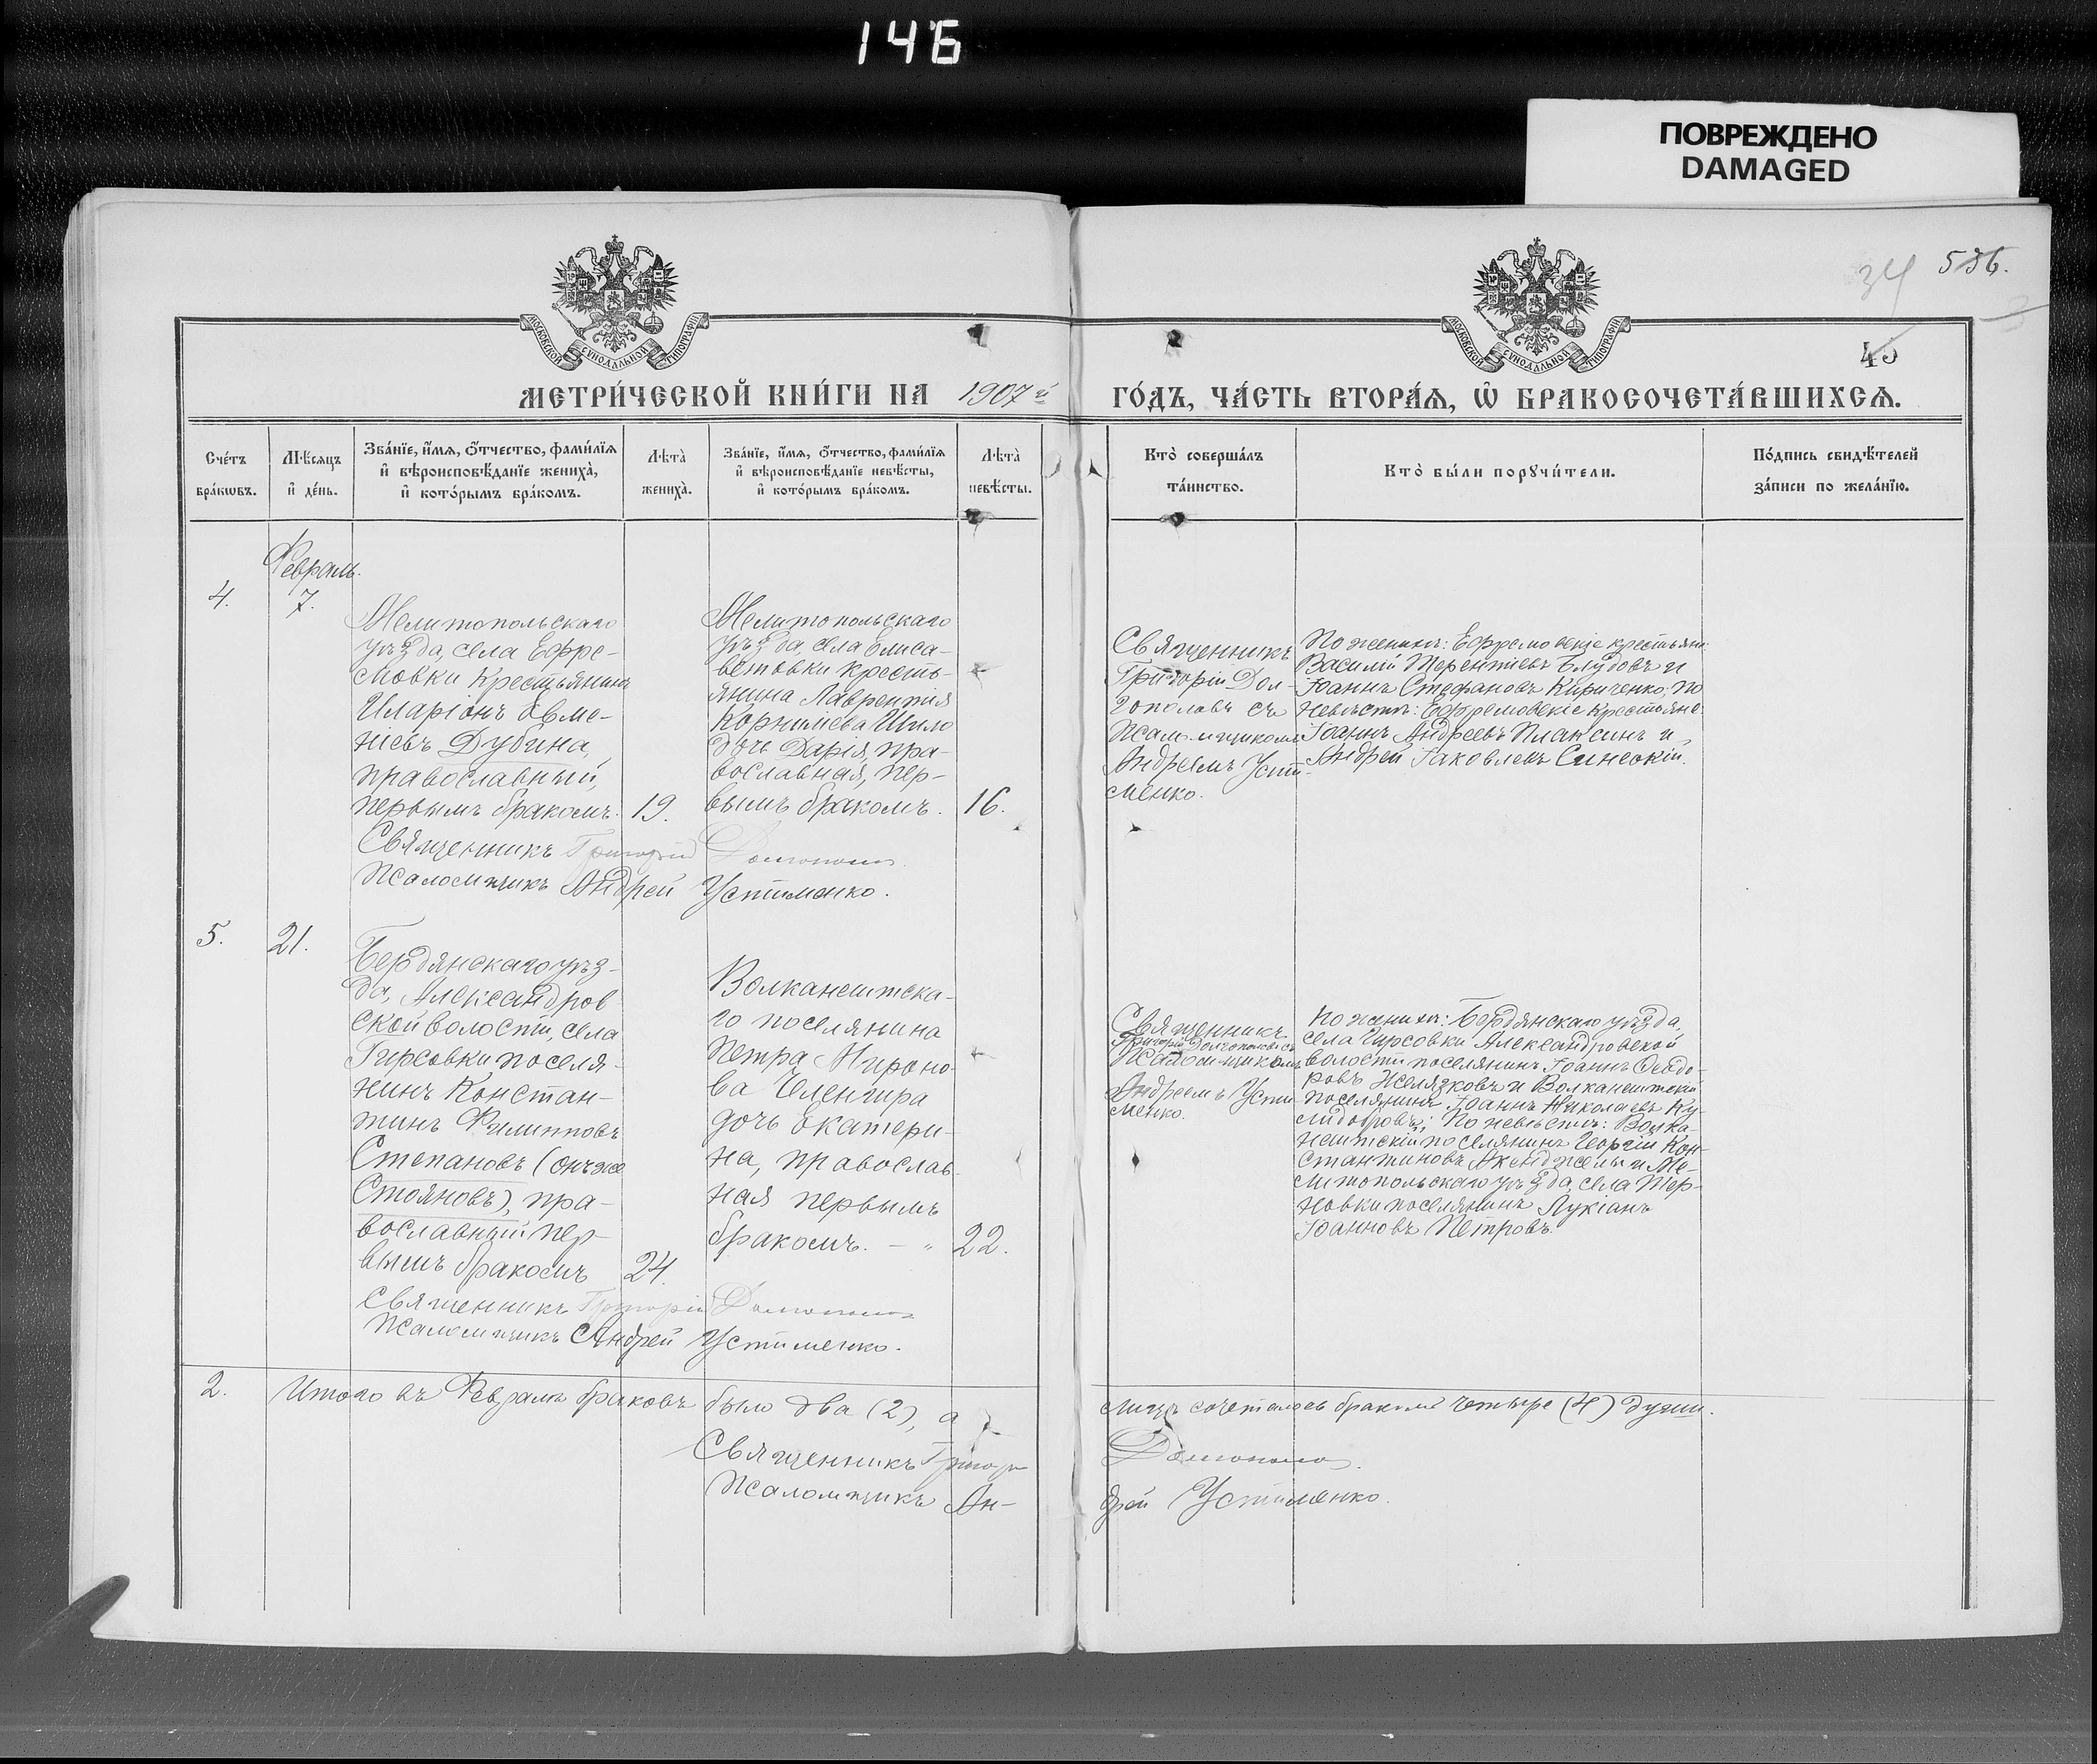 146
ПОВРЕЖДЕНО
DAMAGED
34 536.
45
МОСКОВСКОЙ СѴНОДАЛЬНОЙ ТИПОГРАФІИ
МОСКОВСКОЙ СѴНОДАЛЬНОЙ ТИПОГРАФІИ
МЕТРИ́ЧЕСКОЙ КНИ́ГИ НА 1907й ГО́ДЪ, ЧА́СТЬ ВТОРА́Ѧ, Ѽ БРАКОСОЧЕТА́ВШИХСѦ.
Сче́тъ
бра́кѡвъ.
Мѣ́сѧцъ
и҆ де́нь.
Зва́нїе, и҆́мѧ, ѻ҆́тчество, фами́лїѧ
и҆ вѣроисповѣ́данїе жениха̀,
и҆ кото́рымъ бра́комъ.
Лѣта̀
жениха̀.
Зва́нїе, и҆́мѧ, ѻ҆́тчество, фами́лїѧ
и҆ вѣроисповѣ́данїе невѣ́сты,
и҆ кото́рымъ бра́комъ.
Лѣта̀
невѣ́сты.
Кто̀ соверша́лъ
та́инство.
Кто̀ бы́ли порꙋчи́тели.
По́дпись свидѣ́телей
за́писи по жела́нїю.
Февраль.
4. 7.
Мелитопольскаго
уѣзда, села Ефре-
мовки крестьянинъ
Иларіонъ Евме-
ніевъ Дубина,
православный,
первымъ бракомъ. 19.
Мелитопольскаго
уѣзда, села Елиса-
ветовки кресть-
янина Лаврентія
Корниліева Шило
дочь Дарія, пра-
вославная, пер-
вымъ бракомъ. 16.
Священникъ
Григорій Дол-
гополовъ съ
псаломщикомъ
Андреемъ Усти-
менко.
По женихѣ: Ефремовскіе крестьяне:
Василій Терентіевъ Блудовъ и
Іоаннъ Стефановъ Кириченко; по
невѣстѣ: Ефремовскіе крестьяне:
Іоаннъ Андреевъ Плаксинъ и
Андрей Іаковлевъ Синескій.
Священникъ Григорій
Псаломщикъ Андрей Устименко.
5. 21.
Бердянскаго уѣз-
да, Александров
ской волости, села
Гирсовки поселя-
нинъ Констан-
тинъ Филипповъ
Степановъ (онъ же
Стояновъ), пра-
вославный пер-
вымъ бракомъ 24.
Волканештска-
го поселянина
Петра Мироно-
ва Челенгира
дочь Екатери-
на, православ-
ная первымъ
бракомъ. — „ 22.
Священникъ
Григорій Долгополовъ съ
псаломщикомъ
Андреемъ Усти-
менко.
По женихѣ: Бердянскаго уѣзда,
села Гирсовки Александровской
волости поселянинъ Іоаннъ Ѳеодо-
ровъ Желязковъ и Волканештскій
поселянинъ Іоаннъ Николаевъ Ку-
лидобровъ; По невѣстѣ: Волка-
нештскій поселянинъ Георгій Кон-
стантиновъ и Ме-
литопольскаго уѣзда, села Тер-
новки поселянинъ Лукіанъ
Іоанновъ Петровъ.
Священникъ Григорій
Псаломщикъ Андрей Устименко.
2. Итого въ Февралѣ браковъ было два (2), а лицъ сочеталось бракомъ четыре (4) души.
Священникъ
Псаломщикъ Ан-
дрей Устименко.